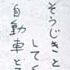 そうじきと
してく
自動車と